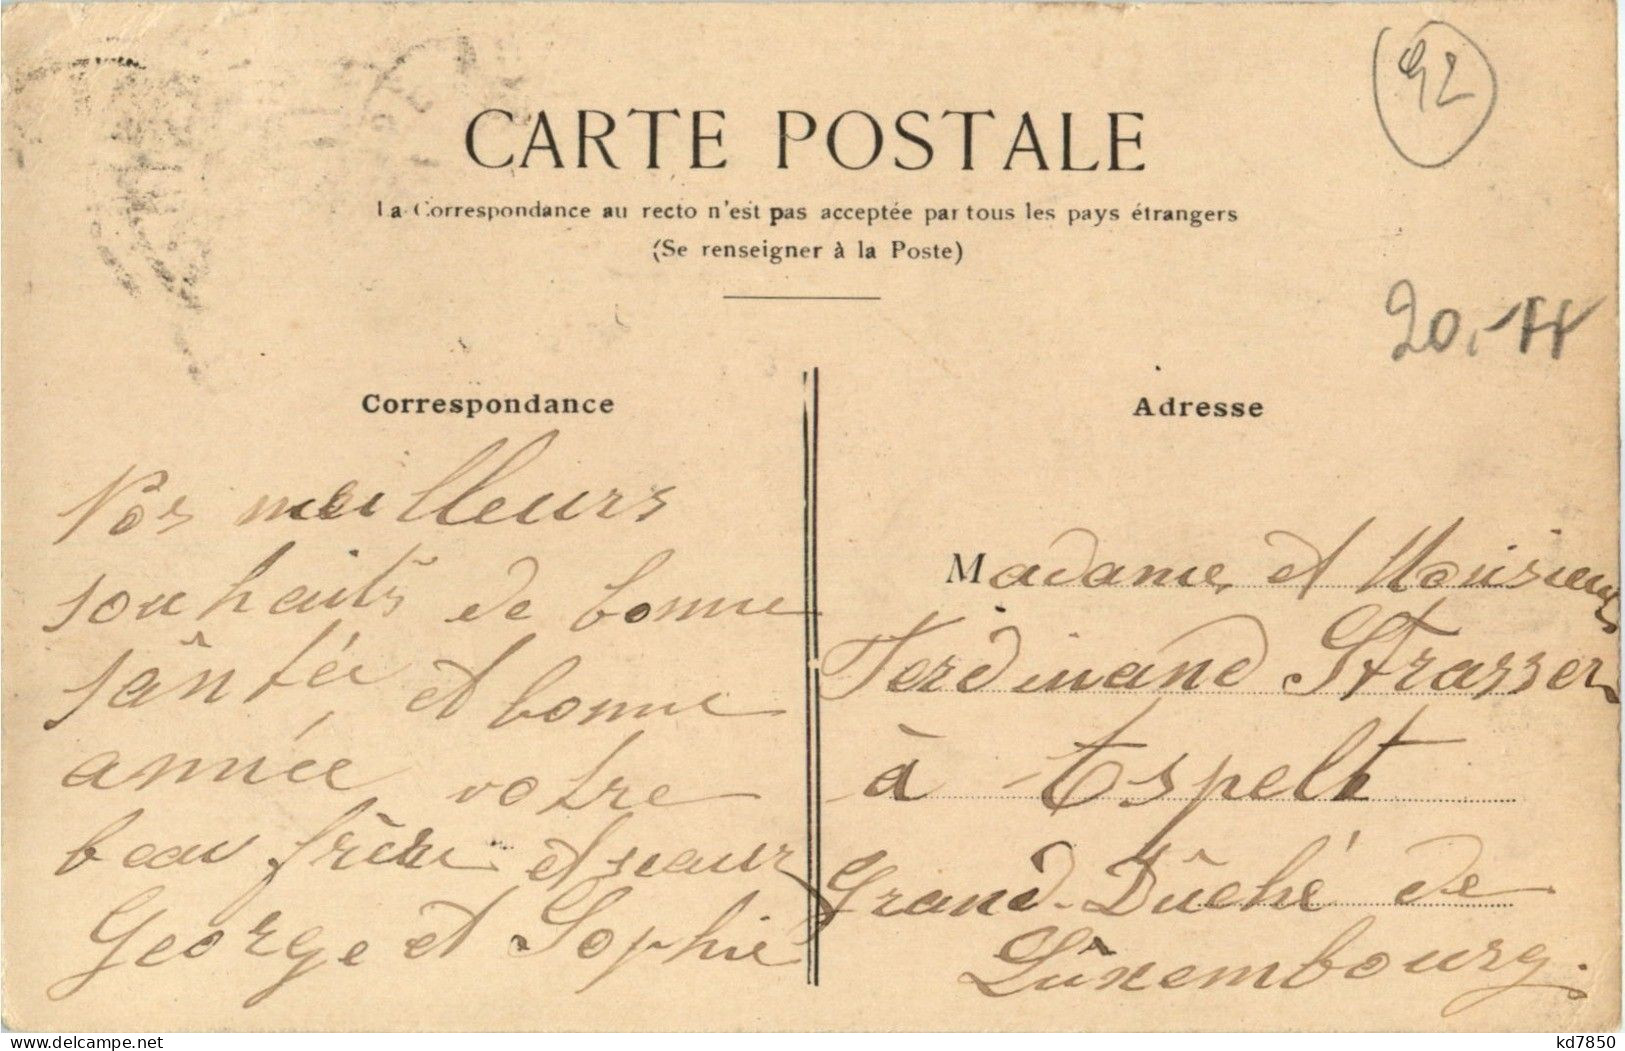 92
CARTE POSTALE
La Correspondance au recto n'est pas acceptée par tous les pays étrangers
(Se renseigner à la Poste)
20,-
Correspondance
Nos meilleurs
souhaits de bonne
sânteé et bonne
année votre
beau frère et seaur
George et Sophie
Adresse
Madame et Monsieur
Ferdinand Strasser
à Espelt
Grand-Dûché de
Luxembourg.
kd7850